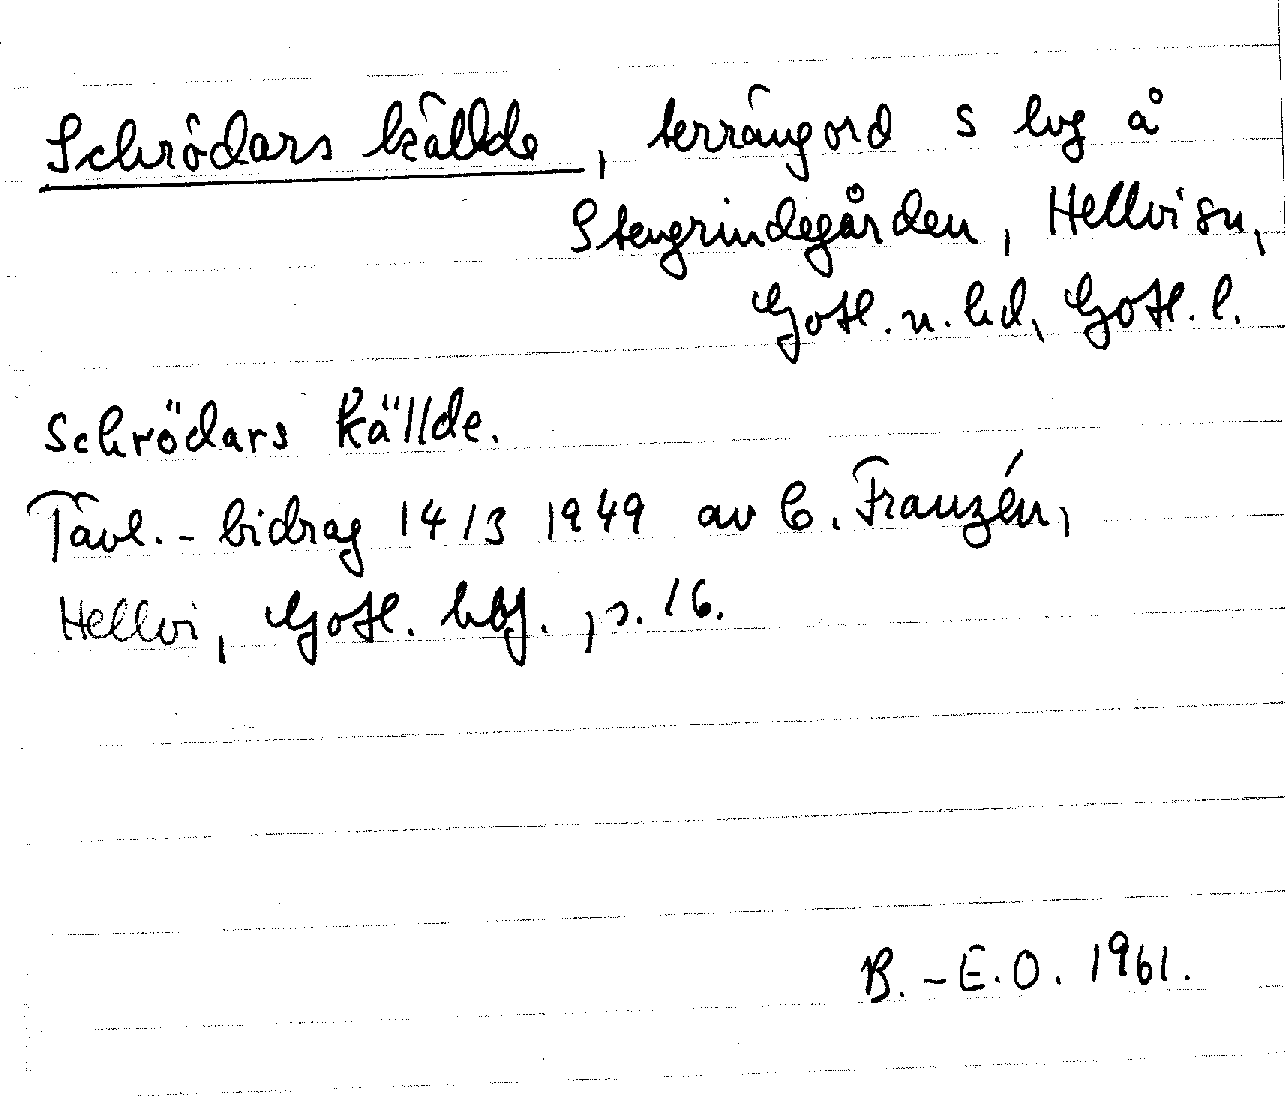 Schrödars källde, terrängord s lvg å
Stengrindegården, Hellvi sn,
Gotl. n. hd, Gotl. l.
Schrödars källde.
Tävl.-bidrag 14/3 1949 av C. Franzén,
Hellvi, Gotl. hbf., s. 16.
B.-E.O. 1961.